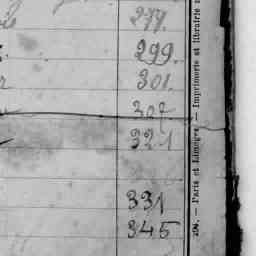 277.
299.
301.
307
321
331
345
204. — Paris et Limoges. — Imprimerie et librairie